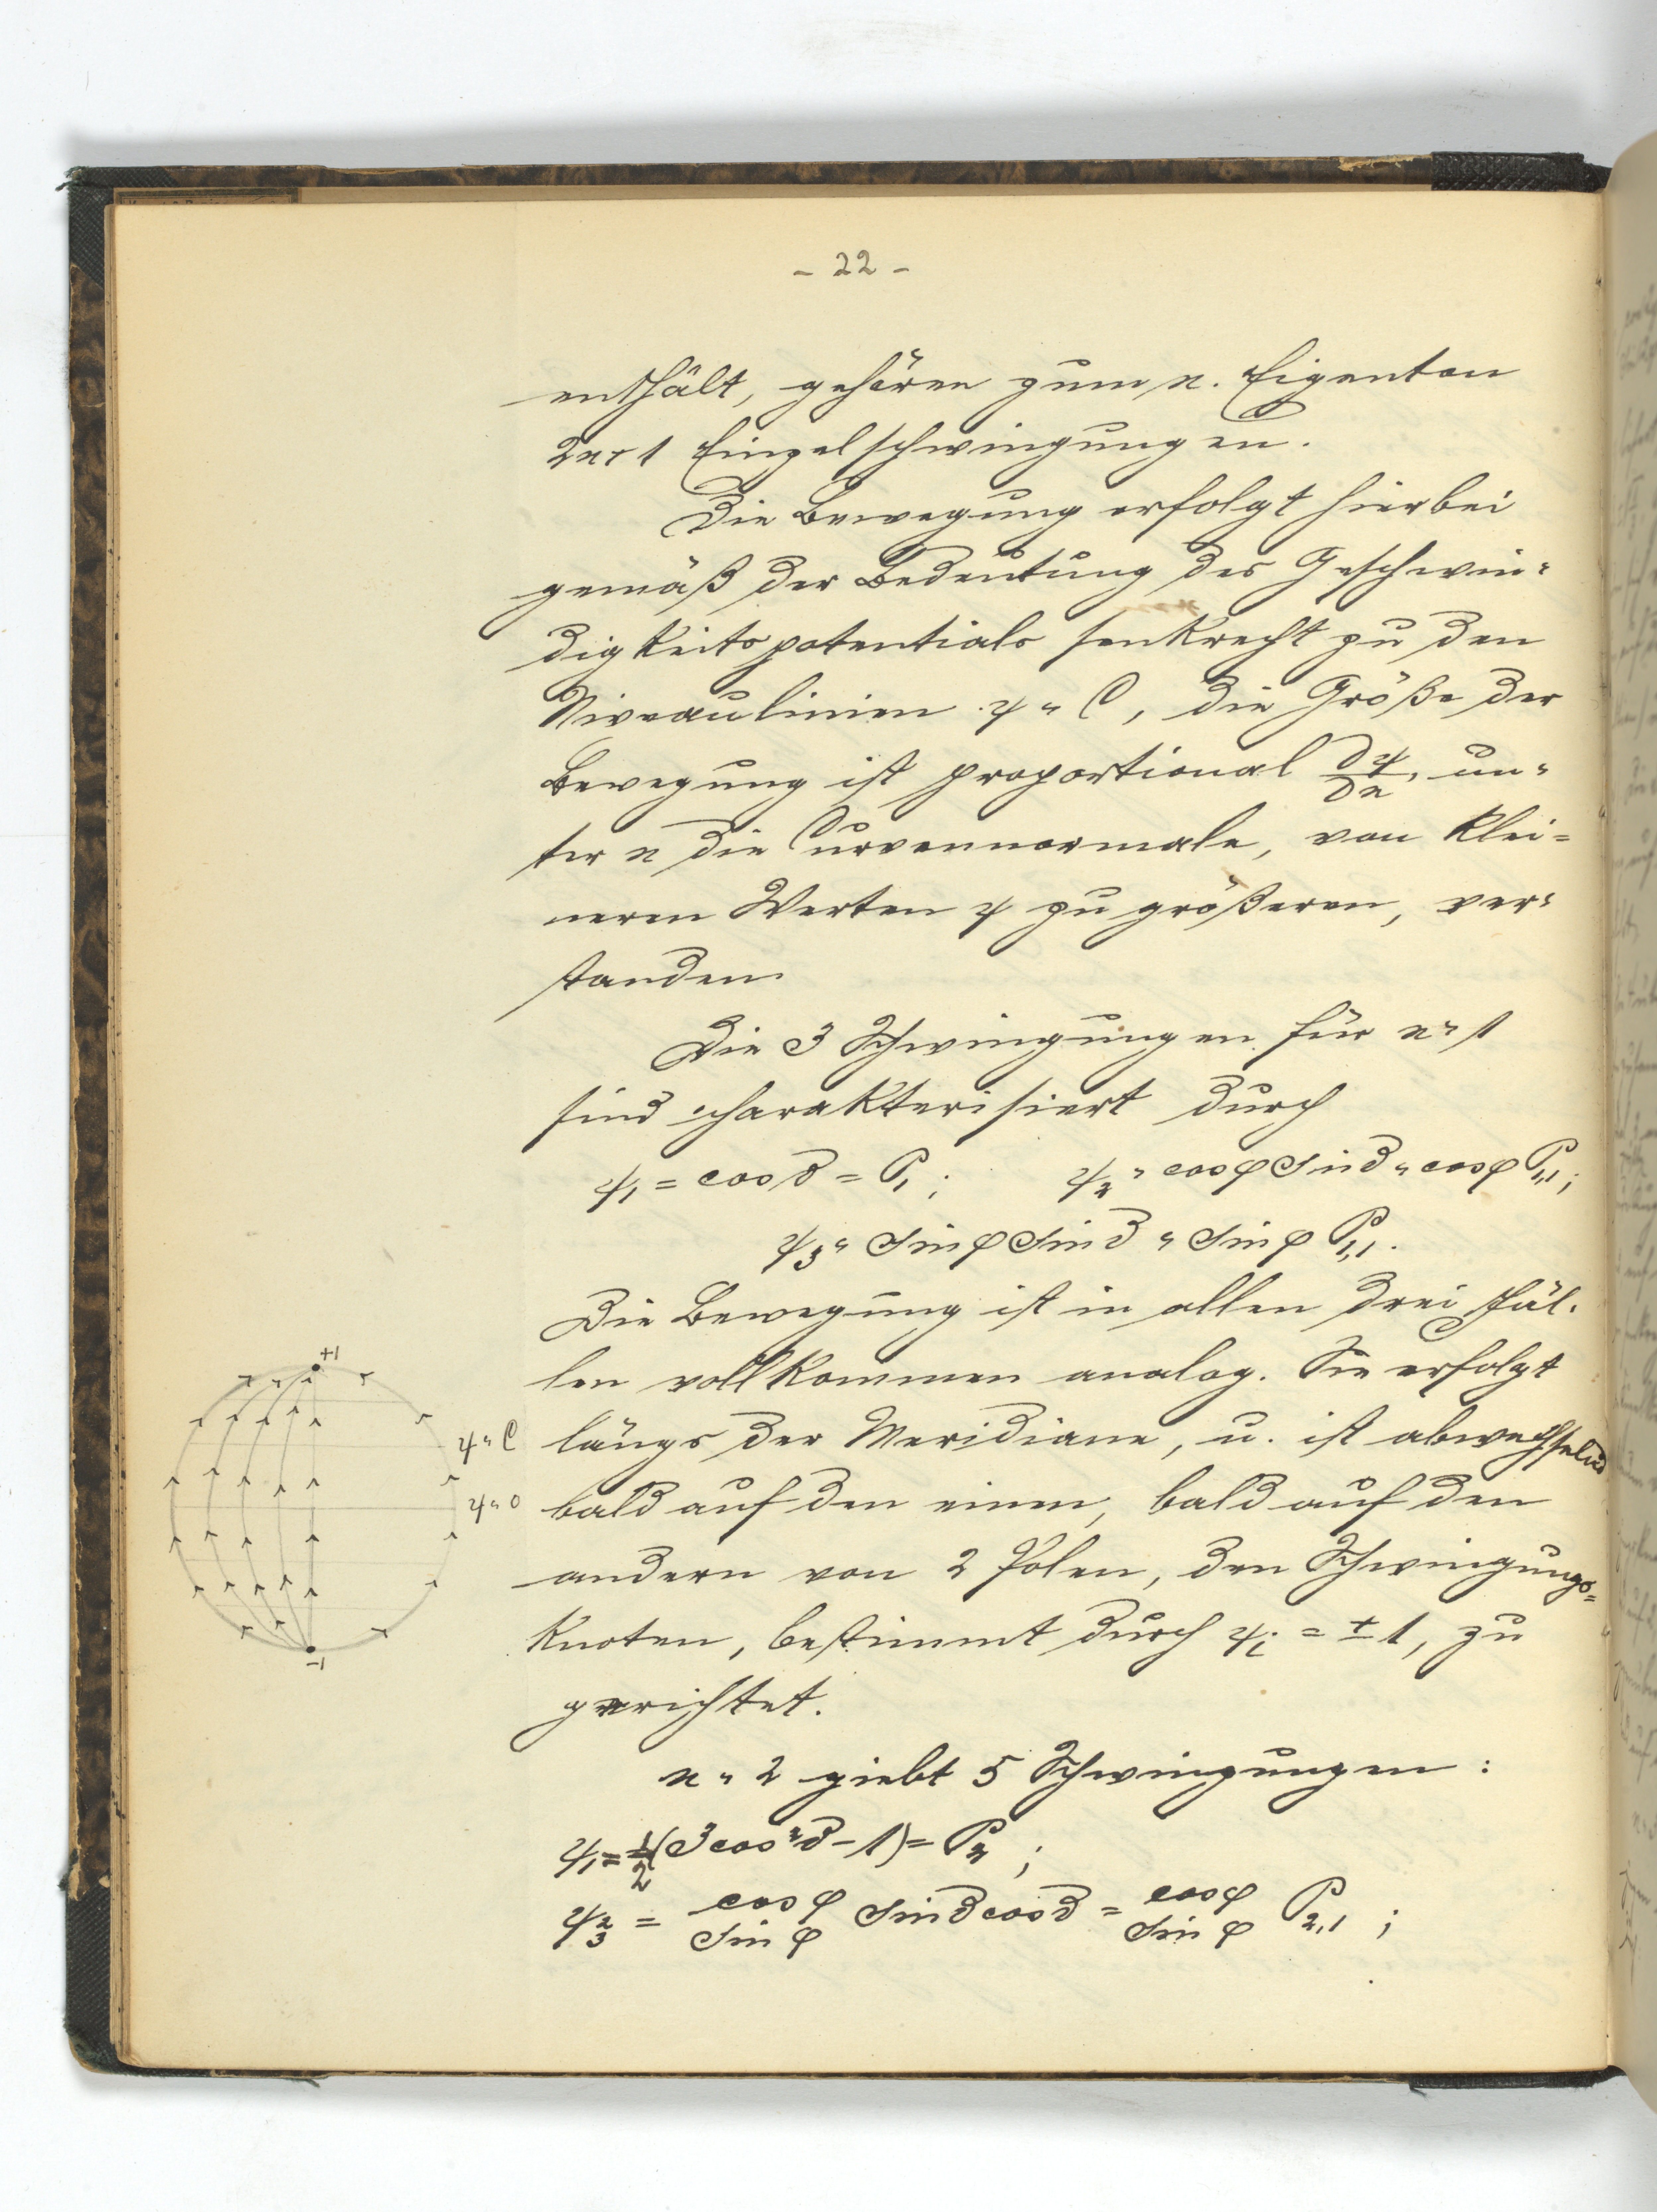 - 22 -
enthält, gehören zum n. Eigenton
2n+1 Einzelschwingungen.
Die Bewegung erfolgt hierbei
gemäß der Bedeutung des Geschwin-
digkeitspotentials senkrecht zu den
Niveaulinien ψ = C, die Größe der
Bewegung ist proportional ∂ψ/∂n, un-
ter n die Curvennormale, von klei-
neren Werten ψ zu größeren, ver-
standen.
Die 3 Schwingungen für n = 1
sind charakterisiert durch
ψ₁ = cos ϑ = P₁ ; ψ₂ = cos φ sin ϑ = cos φ P₁,₁ ;
ψ₃ = sin φ sin ϑ = sin φ P₁,₁.
Die Bewegung ist in allen drei Fäl-
len vollkommen analog. Sie erfolgt
längs der Meridiane, u. ist abwechselnd
bald auf den einen, bald auf den
andern von 2 Polen, den Schwingungs-
knoten, bestimmt durch ψᵢ = ± 1, zu
gerichtet.
n = 2 giebt 5 Schwingungen :
ψ₁ = 1/2 (3 cos² ϑ - 1) = P₂ ;
ψ₂ ₃ = cos φ sin φ sin ϑ cos ϑ = cos φ sin φ P₂,₁ ;
+1
ψ = C
ψ = 0
-1